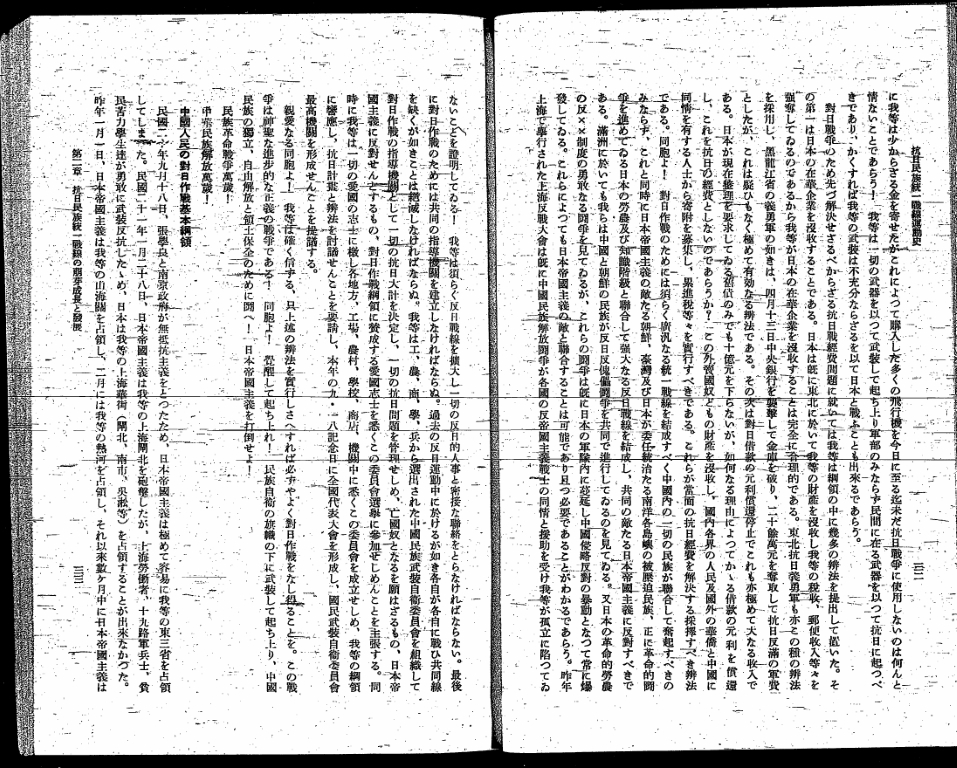 抗日民族統一戰線運動史
三二
に我等は少からざる金を寄せたがこれによつて購入した多くの飛行機を今日に至る迄未だ抗日戰爭に使用しないのは何んと
情ないことであらう！我等は一切の武器を以つて武裝して起ち上り軍部のみならず民間に在る武器を以つて抗日に起つべ
きであり、かくすれば我等の武裝は不充分ならざるを以て日本と戰ふことも出來るであらう。
對日戰爭のため先づ解決せざるべからざる抗日戰經費問題に就いては我等は綱領の中に幾條の辦法を提出して置いた。そ
の第一は日本の在華企業を沒收することである。日本は旣に東北に於いて我等の財產を沒收し我等の稅收、郵便收入等々を
強奪してゐるのであるから我等が日本の在華企業を沒收することは完全に合理的である。東北抗日義勇軍も亦この種の辦法
を採用し、黑龍江省の義勇軍の如きは、四月十三日中央銀行を襲擊して金庫を破り、二十餘萬元を奪取して抗日反滿の軍費
としたが、これは疑ひもなく極めて有効なる辦法である。その次は對日借款の元利償還停止でこれも亦極めて大なる收入で
ある。日本が現在整理を要求してゐる舊債のみでも十億元を下らないが、如何なる理由によつてかゝる借款の元利を償還
し、これを抗日の經費としないのであらうか？この外賣國奴どもの財產を沒收し、國內各界の人民及び國外の華僑と中國に
同情を有する人士から寄附を募集し、累進稅等々を實行すべきである。これらが當面の抗日經費を解決する採擇すべき辦法
である。同胞よ！對日作戰のためには須らく廣汎なる統一戰線を結成すべく中國內の一切の民族が聯合して奮起すべきの
みならず、これと同時に日本帝國主義の敵たる朝鮮、臺灣及び日本が委任統治たる南洋各島嶼の被壓迫民族、正に革命的鬪
爭を進めてゐる日本の勞農及び知識階級と聯合して強大なる反日戰線を結成し、共同の敵たる日本帝國主義に反對すべきで
ある。滿洲に於いても我らは中國と朝鮮の民族が反日反傀儡鬪爭を共同で進行してゐるのを見てゐる。又日本の革命的勞農
の反××制度の勇敢なる鬪爭を見てゐるが、これらの鬪爭は旣に日本の軍隊內に蔓延し中國侵略反對の暴動となつて常に爆
發してゐる。これらによつても日本帝國主義の敵と聯合することは可能であり且つ必要であることがわかるであらう。昨年
上海で擧行された上海反戰大會は旣に中國民族解放鬪爭が各國の反帝國主義戰士の同情と援助を受け我等が孤立に陷つてゐ
ないことを證明してゐる！我等は須らく反日戰線を擴大し一切の反日的人事と密接な聯絡をとらなければならない。最後
に對日作戰のためには共同の指導機關を建立しなければならぬ。過去の反日運動中に於けるが如き各自が各自に戰ひ共同線
を缺くが如きことは絕滅しなければならぬ。我等は工、農、商、學、兵から選出された中國民族武裝自衞委員會を組織して
對日作戰の指導機關として一切の抗日大計を決定し、一切の抗日問題を管理せしめ、亡國奴となるを願はざるもの、日本帝
國主義に反對せんとするもの、對日作戰綱領に贊成する愛國志士を悉くこの委員會選擧に參加せしめんことを主張する。同
時に我等は一切の愛國の志士に檄し各地方、工場、農村、學校、商店、機關中に悉くこの委員會を成立せしめ、我等の綱領
に響應し、抗日計畫と辦法を討議せんことを要請し、本年の九・一八記念日に全國代表大會を形成し、國民武裝自衞委員會
最高機關を形成せんことを提議する。
親愛なる同胞よ！我等は確く信ずる、具上述の辦法を實行しさへすれば必ずやよく對日作戰をなし得ることを。この戰
爭は神聖な進步的な正義の戰爭である！同胞よ！覺醒して起ち上れ！民族自衞の旗幟の下に武裝して起ち上り、中國
民族の獨立、自由解放と領土保全のために鬪へ！日本帝國主義を打倒せよ！
民族革命戰爭萬歲！
中華民族解放萬歲！
中國人民の對日作戰基本綱領
民國二十年九月十八日、張學良と南京政府が無抵抗主義をとつたため、日本帝國主義は極めて容易に我等の東三省を占領
してしまつた。民國二十一年一月二十八日、日本帝國主義は我等の上海閘北を砲擊したが、上海勞働者、十九路軍兵士、貧
民苦力學生達が勇敢に武裝反抗したため、日本は我等の上海華街（閘北、南市、吳淞等）を占領することが出來なかつた。
昨年一月一日、日本帝國主義は我等の山海關を占領し、二月には我等の熱河を占領し、それ以來數ヶ月中に日本帝國主義は
第二章　抗日民族統一戰線の萌芽成長と發展
三三